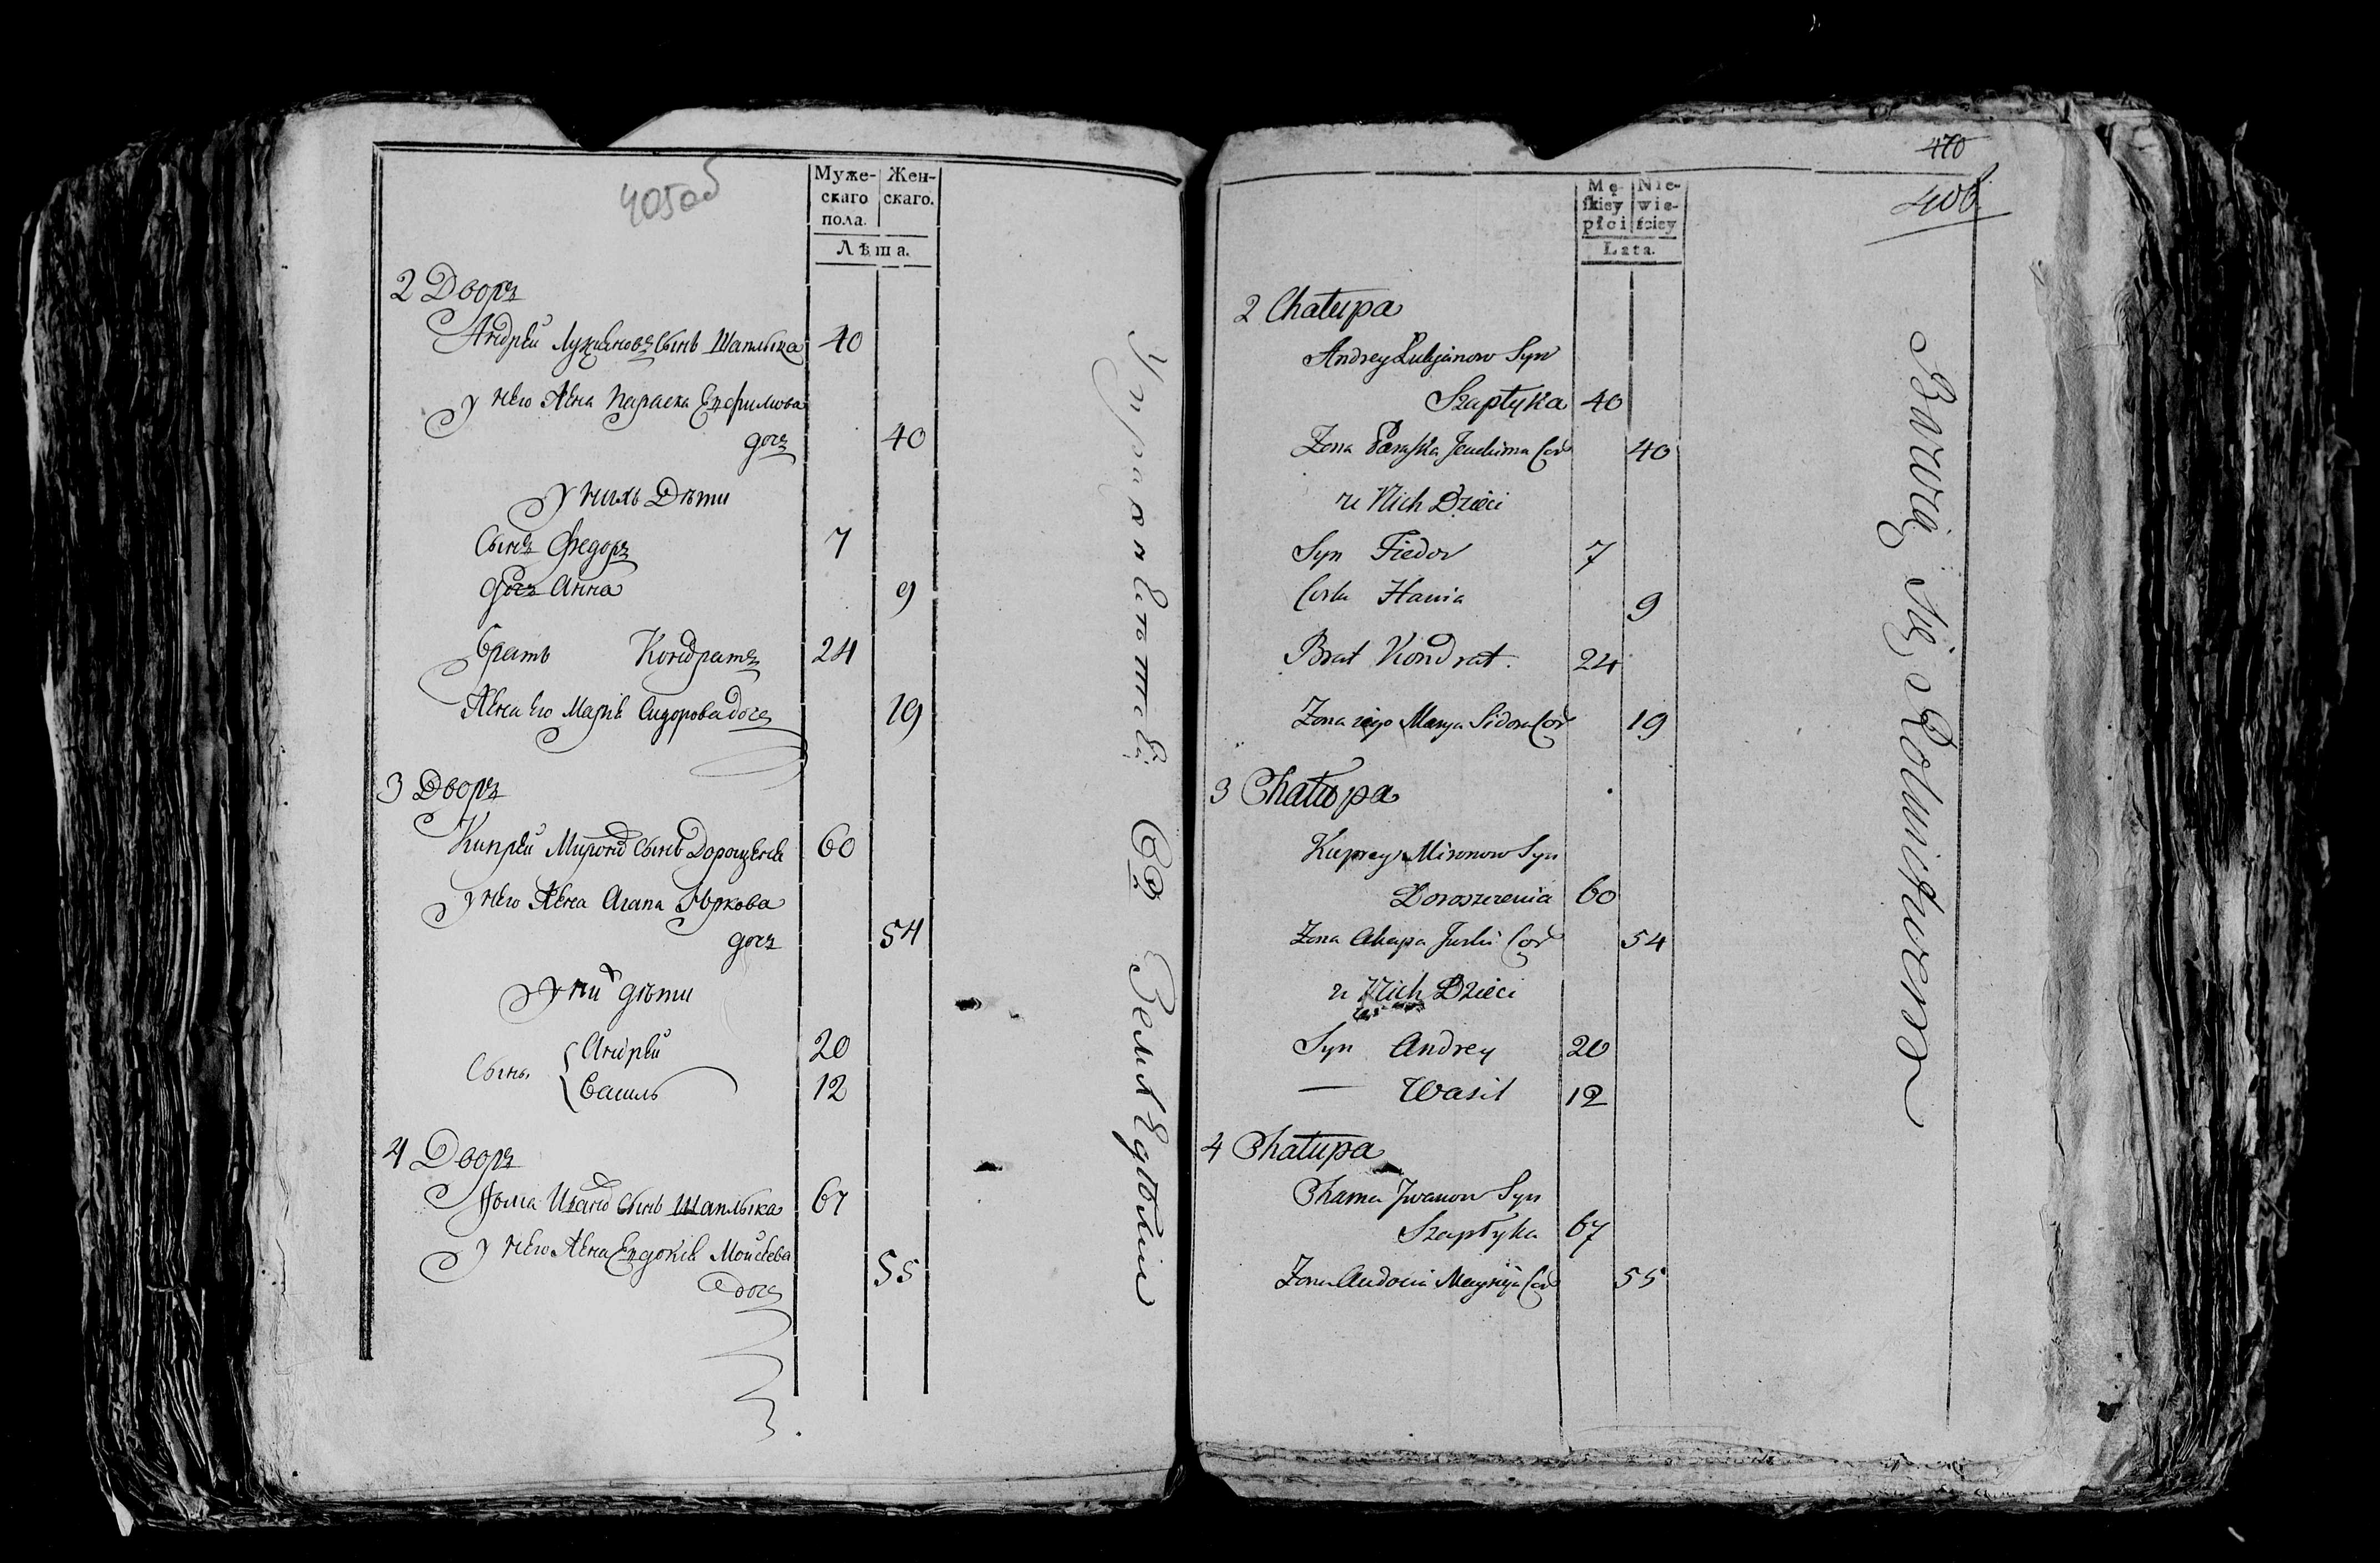 405об
Муже-
скаго
пола.
Жен-
скаго.
Лѣта.
2 Дворъ
Андрей Лукьяновъ Сынъ Шаплыка 40
у него Жена Параска Евфимова
дочь 40
у нихъ Дѣти
Сынъ Федоръ 7
дочь Анна 9
братъ Кондратъ 24
Жена его Марія Сидорова дочь 19
3 Дворъ
Кипрей Миронов Сынъ Дорощеня 60
у него Жена Агапа Юркова
дочь 54
у них дѣти
Сынъ Андрей 20
Василь 12
4 Дворъ
Хома Иванов Сынъ Шаплыка 67
у него Жена Евдокія Моисеева
дочь 55
Упражняются въ Земледѣліи
470
406
Mę-
skiey
płci
Nie-
wie-
ściey
Lata.
2 Chałupa
Andrey Łukjanow Syn
Szapłyka 40
Zona Paraska Jeuchima Cor 40
u Nich Dzieci
Syn Fiedor 7
Corka Hania 9
Brat Kondrat 24
Zona iego Marya Sidora Cor 19
3 Chałupa
Kuprey Mironow Syn
Doroszczenia 60
Zona Ahapa Jurki Cor 54
u Nich Dzieci
Syn Andrey 20
— Wasil 12
4 Chałupa
Chama Jwanow Syn
Szapłyka 67
Zona Audocia Cor 55
Bawią Się Rolnictwem